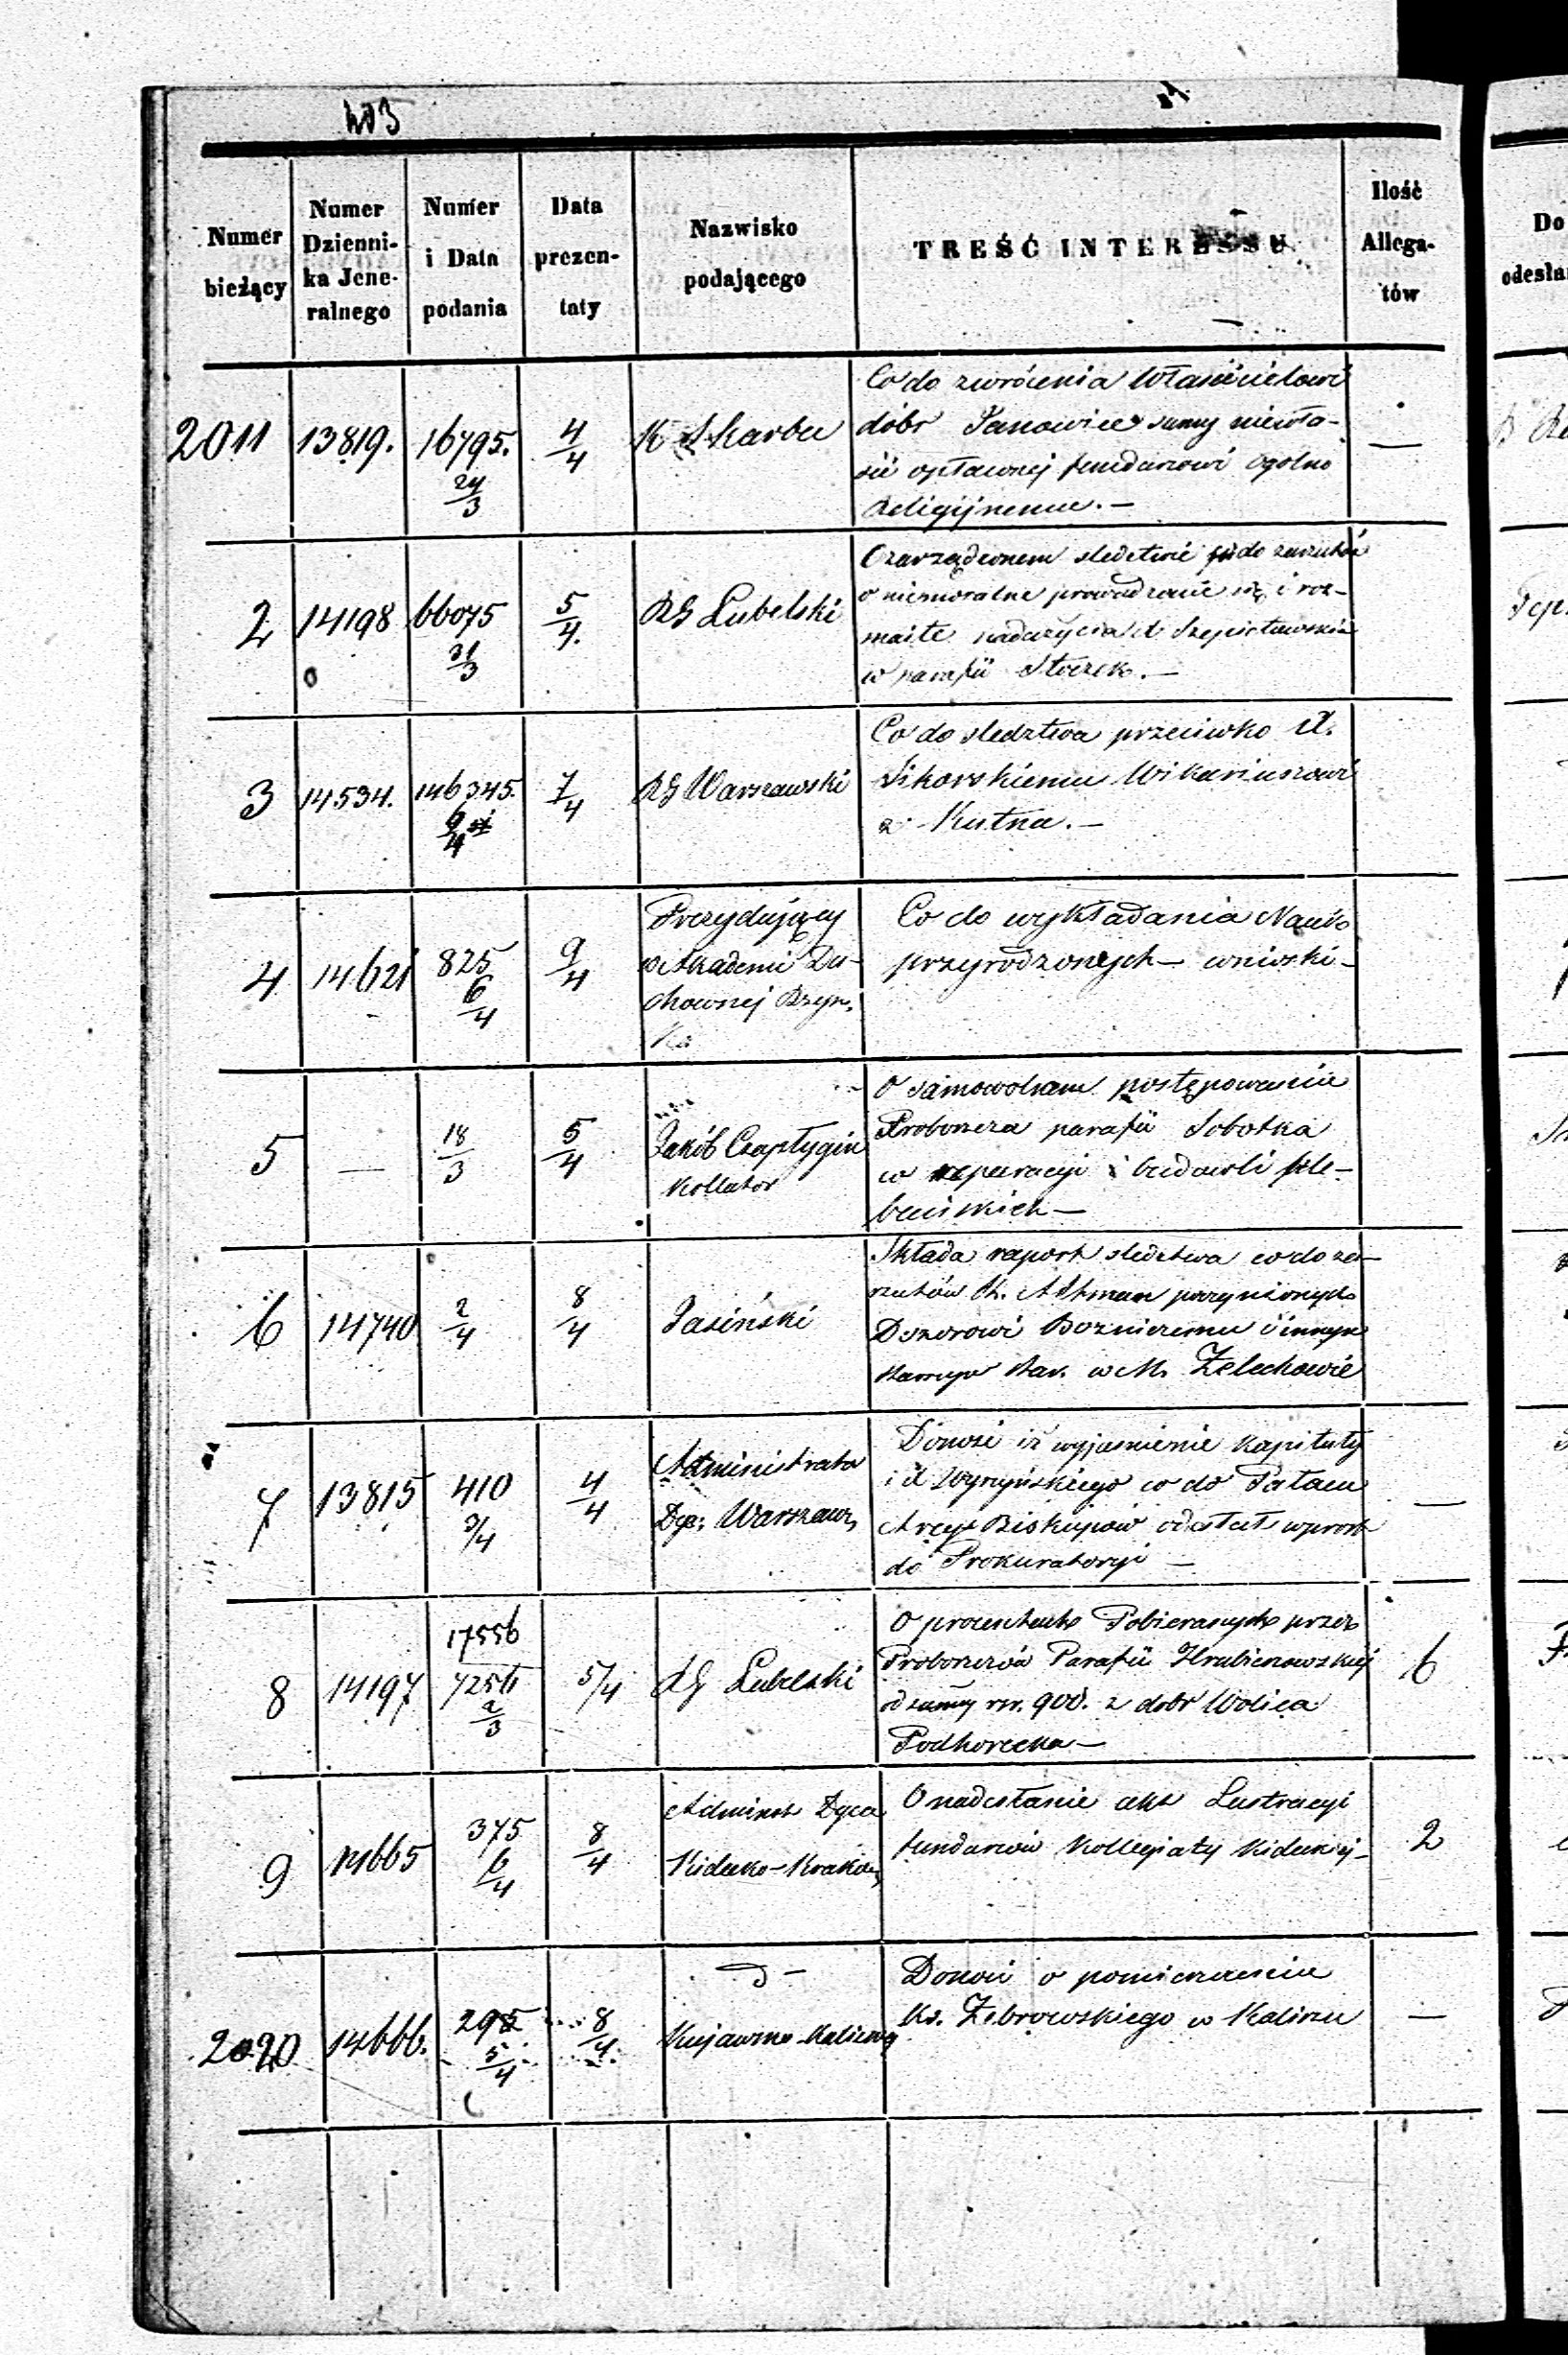 403
Numer bieżący
Numer Dzienni-ka Jene-ralnego
Numer i Data podania
Data prezen-taty
Nazwisko podającego
TREŚĆ INTERESSU
Ilość Allega-tów
Do odesła
2011 13819. 16795. 24/3 4/4 K Skarbu
Co do zwrócenia Właścicielowi
dóbr Janowice sumy niewła-
funduszowi ogolno
Religijnemu. —
—
2 14198 66075 31/3 5/4. RG Lubelski
O zarządzonem śledztwie
o niemoralne prowadzenie się i roz-
maite nadużycia X
w parafii Stoczek. —
3 14534. 146345. 6/4 7/4 RG Warszawski
Co do śledztwa przeciwko X.
Sikorskiemu Wikariuszowi
z Kutna. —
4 14621 825 6/4 9/4
Prezydujący
w Akademi Du-
chownej Rzym.
Ka
Co do wykładania Nauk
przyrodzonych — wnioski —
5 — 18/3 5/4
Jakób Czapłygin
Kollator
O samowolnem postępowaniu
Proboszcza parafii Sobotka
w reparacyi i budowli ple-
bańskich —
6 14740 2/4 8/4 Jasiński
Składa raport śledztwa co do za-
rzutów
Dozorowi Bożniczemu i innym
w M. Żelechowie
7 13815 410 3/4 4/4
Administrator
Dye: Warszaw,
Donosi iż wyjaśnienie Kapituły
i X Wyrzyńskiego co do Pałacu
Arcy Biskupów odesłał wprost
do Prokuratoryi —
—
8 14197 17556 7256 2/3 5/4 RG Lubelski
O procentach Pobieranych przez
Proboszczów Parafii Hrubieszowskiej
od sumy rsr. 900. z dóbr Wolica
Podhorecka —
6
9 14665 375 6/4 8/4
Administ Dyea
Kielecko-Krakow
O nadesłanie akt Lustracyi
funduszów Kollegiaty Kieleckiej —
2
2020 14666. 295 5/4 8/4.
— d —
Kujawsko-Kaliskiej
Donosi o pomieszczeniu
Ks. Żebrowskiego w Kaliszu
—